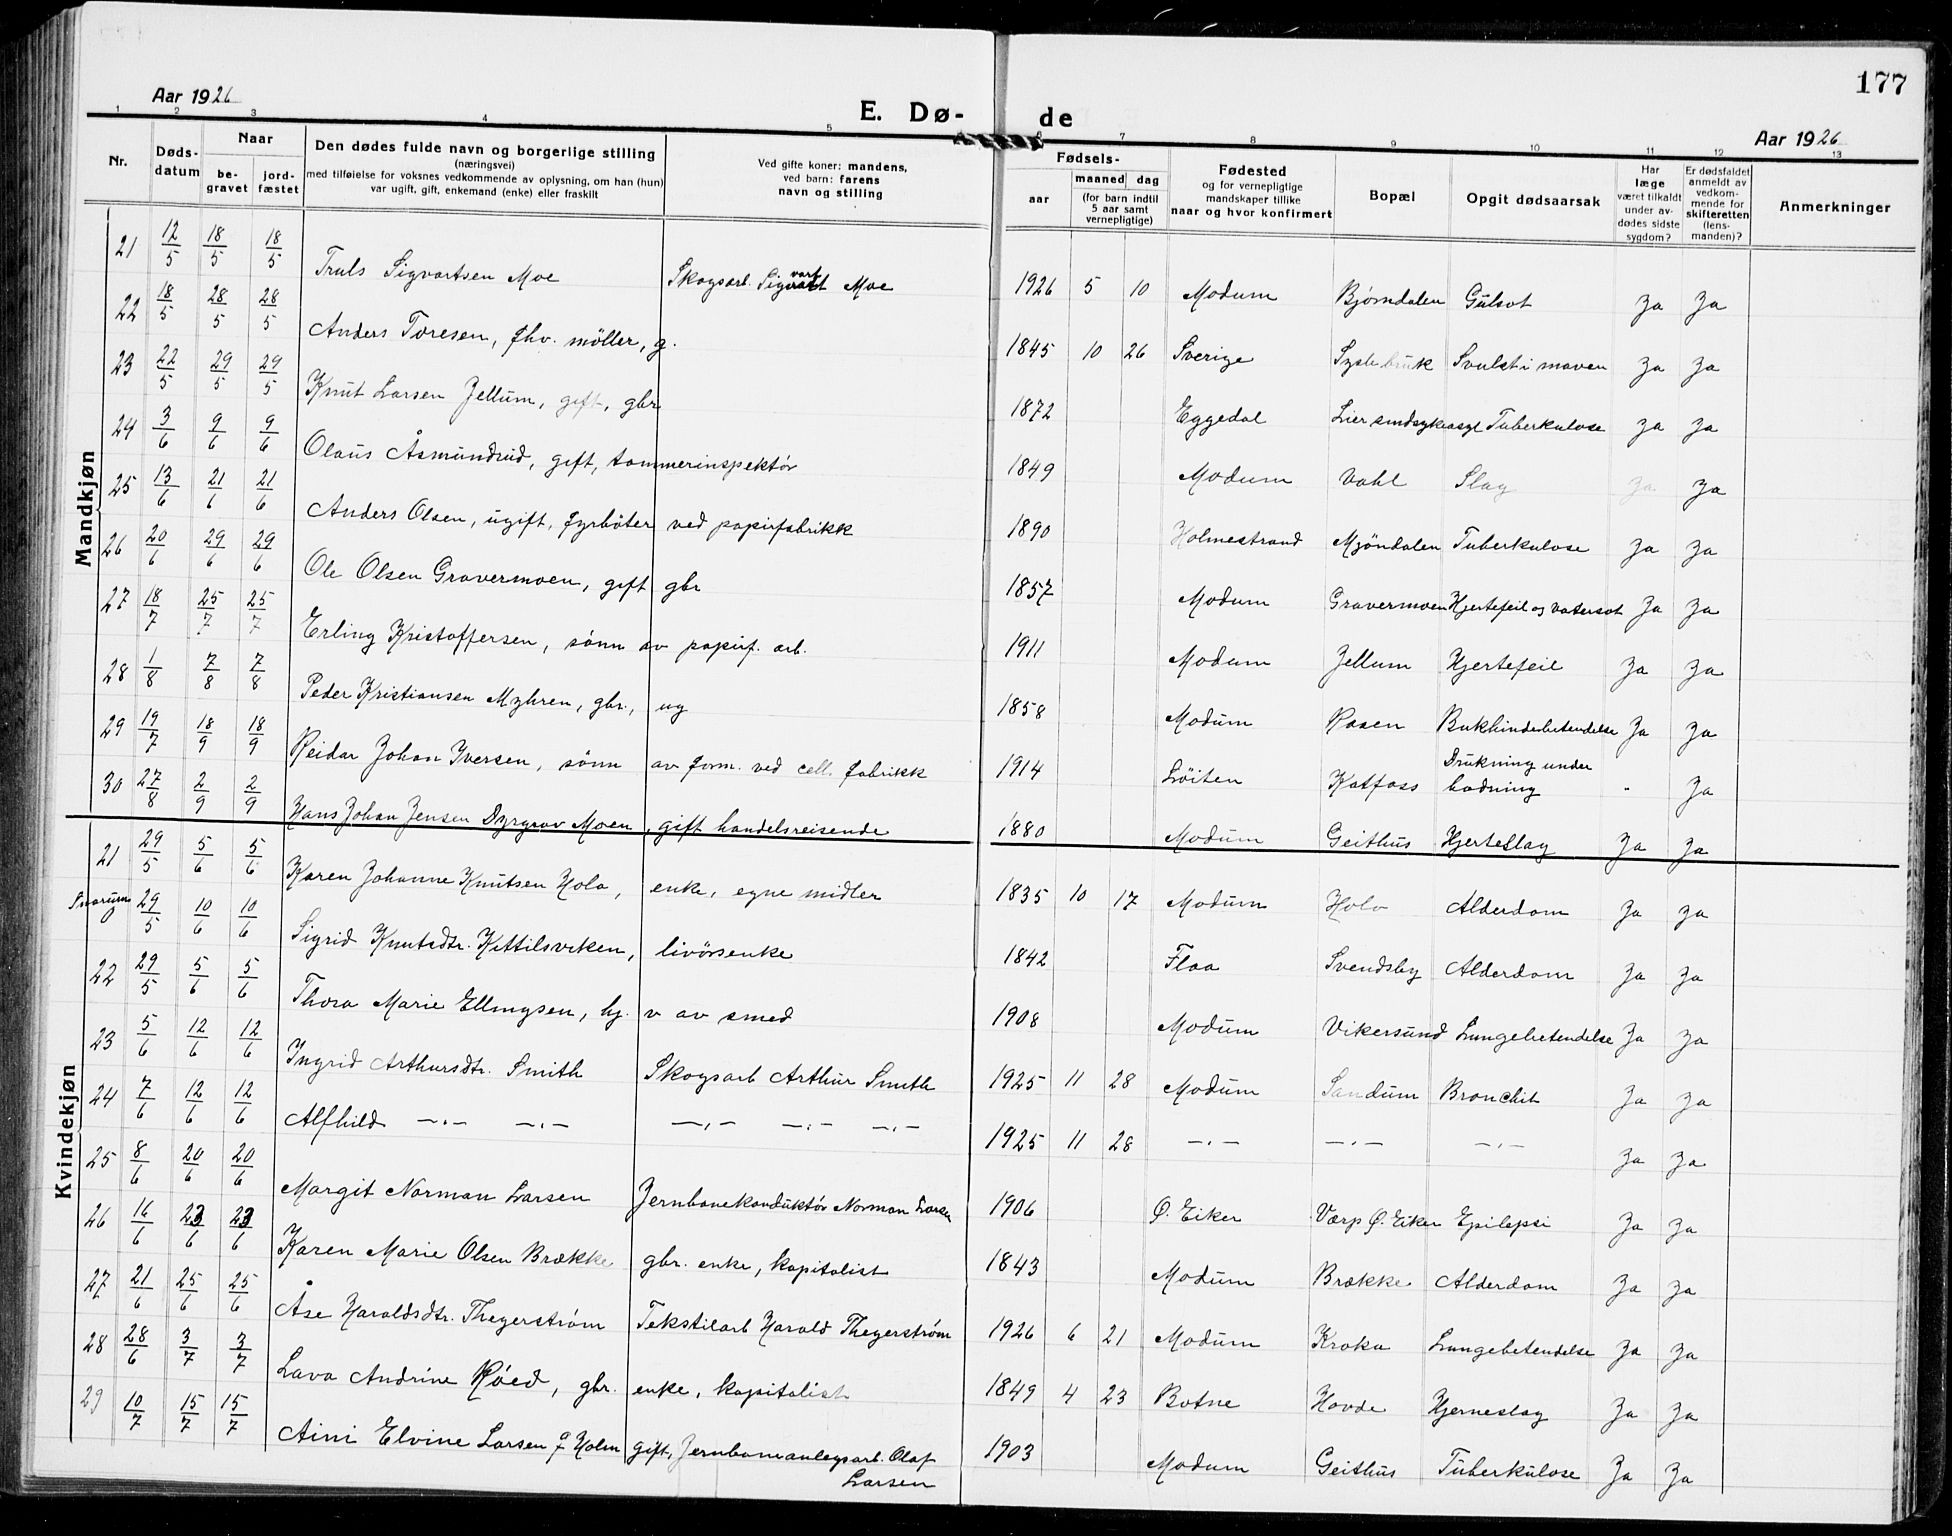 177
Aar 1926
E. Dø- de
Aar 1926
1 2 3 4 5 6 7 8 9 10 11 12 13
Nr. Døds-datum Naar be-gravet jord-fæstet
Den dødes fulde navn og borgerlige stilling
(næringsvei)
med tilføielse for voksnes vedkommende av oplysning, om han (hun)
var ugift, gift, enkemand (enke) eller fraskilt
Ved gifte koner: mandens,
ved barn: farens
navn og stilling
Fødsels- aar maaned dag
(for barn indtil
5 aar samt
vernepligtige)
Fødested
og for vernepligtige
mandskaper tillike
naar og hvor konfirmert
Bopæl
Opgit dødsaarsak
Har
læge
været tilkaldt
under av-
dødes sidste
sygdom?
Er dødsfaldet
anmeldt av
vedkom-
mende for
skifteretten
(lens-
manden)?
Anmerkninger
Mandkjøn
21 12/5 18/5 18/5 Truls Sigvartsen Moe Skogsarb. Sigvart Moe 1926 5 10 Modum Bjørndalen Gulsot Ja Ja
22 18/5 28/5 28/5 Anders Toresen, fhv. möller, g. 1845 10 26 Sverige bruk Svulst i maven Ja Ja
23 22/5 29/5 29/5 Knut Larsen Jellum, gift, gbr 1872 Eggedal Lier sindsykeasyl Tuberkulose Ja Ja
24 3/6 9/6 9/6 Olaus Åsmundrud, gift, tømmerinspektör 1849 Modum Vahl Slag Ja Ja
25 13/6 21/6 21/6 Anders Olsen, ugift, fyrböter ved papirfabrikk 1890 Holmestrand Mjöndalen Tuberkulose Ja Ja
26 20/6 29/6 29/6 Ole Olsen Gravermoen, gift gbr 1857 Modum Gravermoen Hjertefeil og vatersot Ja Ja
27 18/7 25/7 25/7 Erling Kristoffersen, sönn av papirf. arb. 1911 Modum Jellum Hjertefeil Ja Ja
28 1/8 7/8 7/8 Peder Kristiansen Myhren, gbr., ug 1858 Modum Aasen Bukhindebetendelse Ja Ja
29 19/7 18/9 18/9 Reidar Johan Iversen, sönn av form. ved cell. fabrikk 1914 Löiten Katfoss Drukning under badning " Ja
30 27/8 2/9 2/9 Hans Johan Jensen Dyrgrav Moen, gift handelsreisende 1880 Modum Geithus Hjerteslag Ja Ja
Kvindekjøn
21 29/5 5/6 5/6 Karen Johanne Knutsen Hola, enke, egne midler 1835 10 17 Modum Hola Alderdom Ja Ja
Snarum 29/5 10/6 10/6 Sigrid Knutsdtr. Kittilsviken, livörsenke 1842 Flaa Svendsby Alderdom Ja Ja
22 29/5 5/6 5/6 Thora Marie Ellingsen, hj. v av smed 1908 Modum Vikersund Lungebetendelse Ja Ja
23 5/6 12/6 12/6 Ingrid Arthursdtr. Smith Skogsarb Arthur Smith 1925 11 28 Modum Sandum Bronchit Ja Ja
24 7/6 12/6 12/6 Alfhild —"— —"— —"— —"— —"— 1925 11 28 —"— —"— —"— Ja Ja
25 8/6 20/6 20/6 Margit Norman Larsen Jernbanekonduktör Norman Larsen 1906 Ø. Eiker Værp Ø. Eiker Epilepsi Ja Ja
26 16/6 23/6 23/6 Karen Marie Olsen Brække gbr. enke, kapitalist 1843 Modum Brække Alderdom Ja Ja
27 21/6 25/6 25/6 Åse Haraldsdtr. Thegerstrøm Tekstilarb Harald Thegerstrøm 1926 6 21 Modum Kroka Lungebetendelse Ja Ja
28 28/6 3/7 3/7 Lava Andrine Röed, gbr. enke, kapitalist 1849 4 23 Botne Hovde Hjerneslag Ja Ja
29 10/7 15/7 15/7 Aini Elvine Larsen f Holm gift, Jernbaneanlegsarb. Olaf Larsen 1903 Modum Geithus Tuberkulose Ja Ja